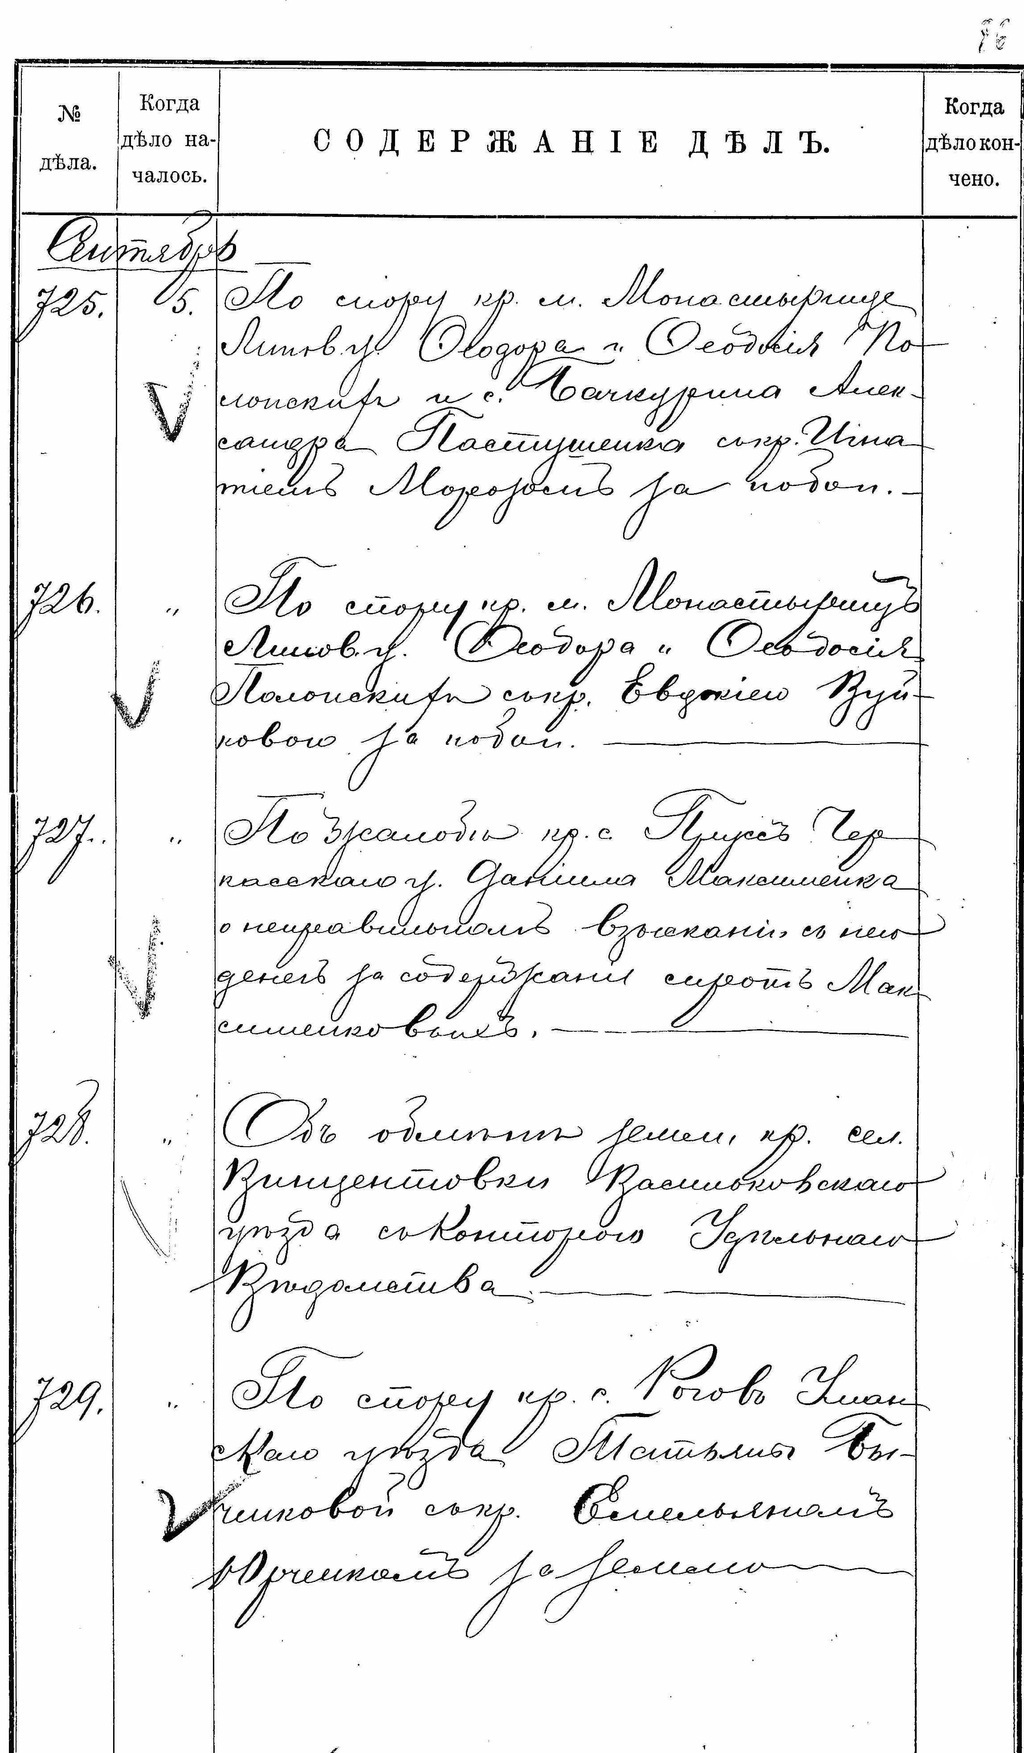 76
№ дѣла.
Когда дѣло началось.
СОДЕРЖАНІЕ ДѢЛЪ.
Когда дѣло кончено.
Сентябрь
725. 5. По спору кр. м. Монастырище
Липов. у. Ѳеодора и Ѳеодосія По-
лонскихъ и с. Бачкурина Алек-
сандра Пастушенка съ кр. Игна-
тіемъ Морозомъ за побои. —
726. " По спору кр. м. Монастырищъ
Липов. у. Ѳеодора и Ѳеодосія
Полонскихъ съ кр. Евдокіею Вуй-
ковою за побои. —
727. " По жалобѣ кр. с. Прусъ Чер-
касскаго у. Даніила Максименка
о неправильномъ взысканіи съ него
денегъ за содержаніе сиротъ Мак-
сименковыхъ. —
728. " Объ обмѣнѣ земель кр. сел.
Винцентовки Васильковскаго
уѣзда съ Конторою Удѣльнаго
Вѣдомства. —
729. " По спору кр. с. Роговъ Уман-
скаго уѣзда Татьяны Бы-
чковой съ кр. Емельяномъ
Юрченкомъ за землю —